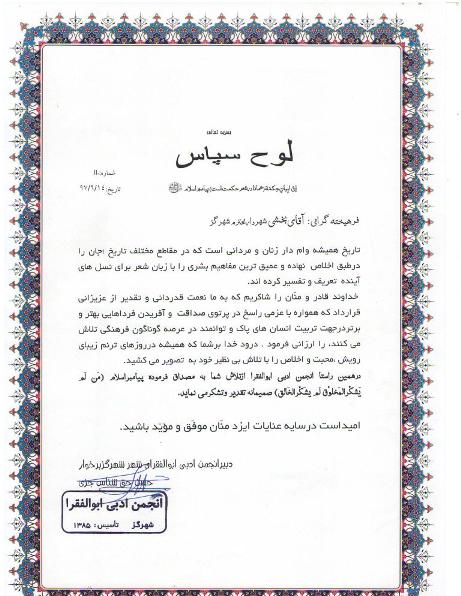 بسمه تعالی
لوح سپاس
شماره: ۱۱
تاریخ: ۹۷/۶/۱۴
فرهیخته گرامی: آقای بخشی شهردار محترم شهر گز
تاریخ همیشه وام دار زنان و مردانی است که در مقاطع مختلف تاریخ اجان را
درطبق اخلاص نهاده و عمیق ترین مفاهیم بشری را با زبان شعر برای نسل های
آینده تعریف و تفسیر کرده اند.
خداوند قادر و منّان را شاکریم که به ما نعمت قدردانی و تقدیر از عزیزانی
قرارداد که همواره با عزمی راسخ در پرتوی صداقت و آفریدن فرداهایی بهتر و
برتردرجهت تربیت انسان های پاک و توانمند در عرصه گوناگون فرهنگی تلاش
می کنند، را ارزانی فرمود . درود خدا برشما که همیشه درروزهای ترنم زیبای
رویش ،محبت و اخلاص را با تلاش بی نظیر خود به تصویر می کشید.
درهمین راستا انجمن ادبی ابوالفقرا ازتلاش شما به مصداق فرموده پیامبراسلام (مَن لَم
یَشکُرالمَخلوق لَم یَشکُرالخالِق) صمیمانه تقدیر وتشکرمی نماید.
امیداست درسایه عنایات ایزد منّان موفق و مؤیّد باشید.
دبیرانجمن ادبی ابوالفقرای شهر شهرگزبرخوار
حسن حق شناس جزی
انجمن ادبی ابوالفقرا
شهرگز تأسیس: ۱۳۸۵